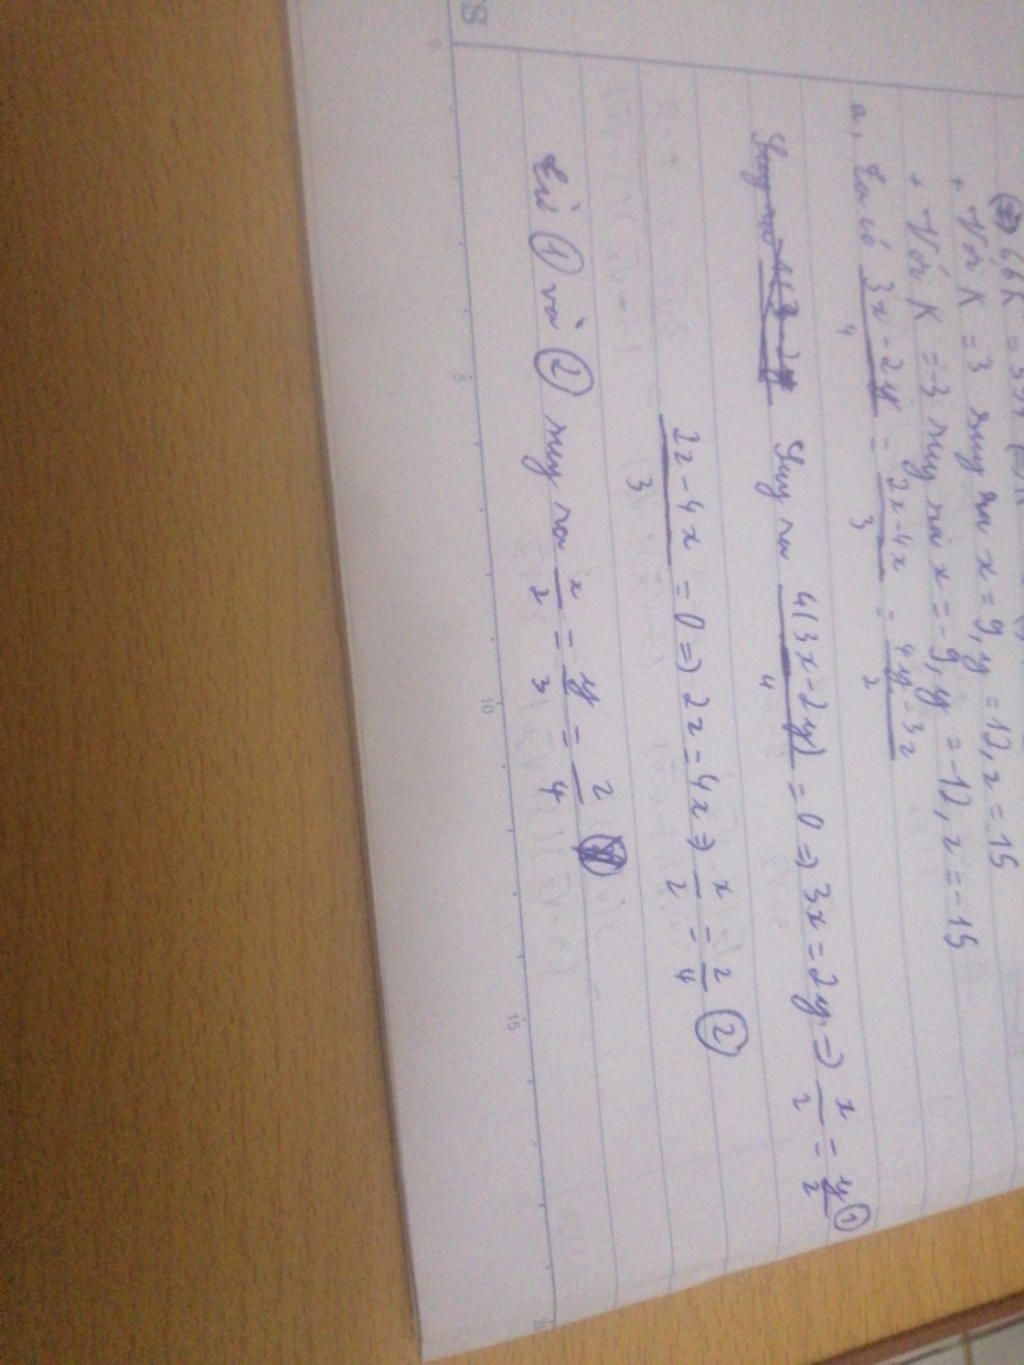 66k² = 594
+ Với K = 3 suy ra x = 9, y = 12, z = 15
+ Với K = -3 suy ra x = -9, y = -12, z = -15
a, Ta có (3x - 2y)/4 = (2x - 4x)/3 = (4y - 3z)/2
Suy ra 4(3x - 2y)/4 = 0 => 3x = 2y => x/2 = y/2 ①
(2z - 4x)/3 = 0 => 2z = 4x => x/2 = z/4 ②
Từ ① và ② suy ra x/2 = y/3 = z/4
0 5 10 15 20